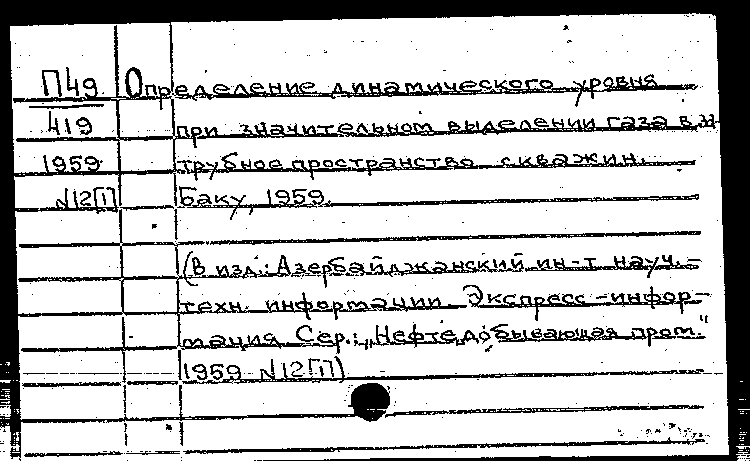 П49 Определение динамического уровня
419 при значительном выделении газа в за-
1959 трубное пространство скважин.
N12[1] Баку, 1959.
(В изд.: Азербайджанский ин-т науч.-
техн. информации. Экспресс-инфор-
мация Сер.: „Нефтедобывающая пром."
1959 N12[1])